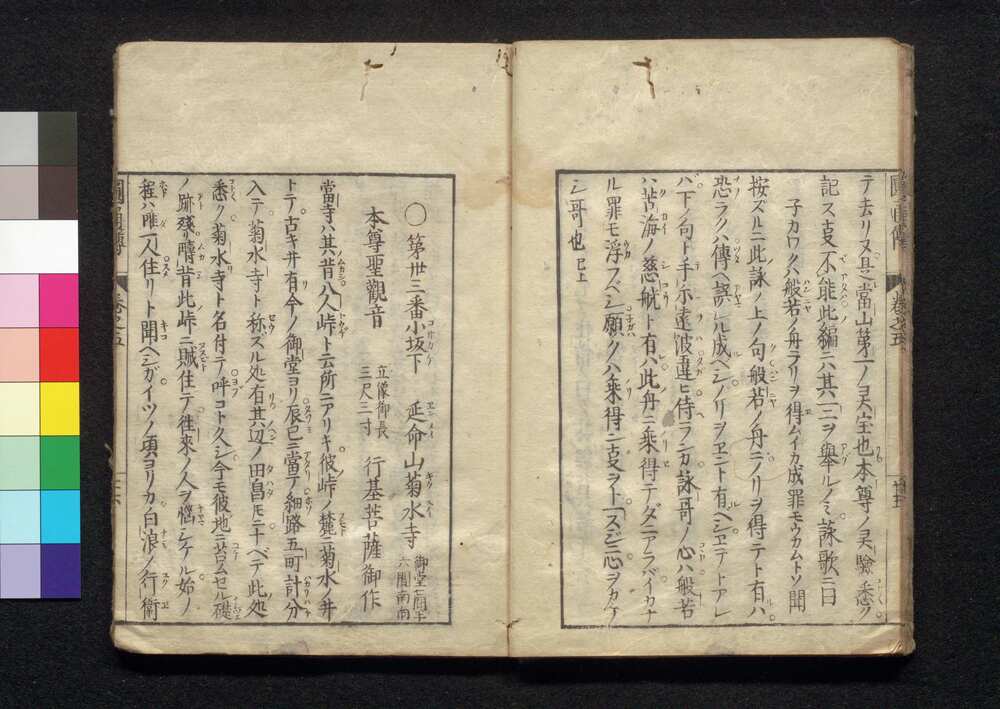 テ去リヌ是當山第一ノ灵宝也本尊ノ灵驗悉ク
記スヿ不能此編ニハ其一二ヲ舉ルノミ詠歌ニ曰
子カワクハ般若ノ舟ニノリヲ得ムイカ成罪モウカムトソ聞
按ズルニ此詠ノ上ノ句般若ノ舟ニノリヲ得テト有ハ
恐ラクハ傳ヘ誤レル成ヘシノリヲヱント有ヘシヱテトアレ
ハ下ノ句ト手尓遠波違ヒ侍ランカ詠哥ノ心ハ般若
ハ苦海ノ慈航ト有ハ此舟ニ乘得テダニアラバイカナ
ル罪モ浮フベシ願クハ乘得ンヿヲト一スジニ心ヲカケ
シ哥也已上
〇第卅三番小坂下 延命山菊水寺 御堂七間半六間南向
本尊聖觀音 立像御長三尺三寸 行基菩薩御作
當寺ハ其昔八人峠ト云所ニアリキ彼峠ノ麓ニ菊水ノ井
トテ古キ井有今ノ御堂ヨリ辰巳ニ當テ細路五町計分
入テ菊水寺ト称ズル処有其辺ノ田畠モ二十ベテ此処
悉ク菊水寺ト名付テ呼コト久シ今モ彼地ニ苔ムセル礎
ノ跡殘リ疇昔此峠ニ賊住テ徃來ノ人ヲ惱シケル始ノ
程ハ唯一人住リト聞ヘシガイツノ頃ヨリカ白浪ノ行衛